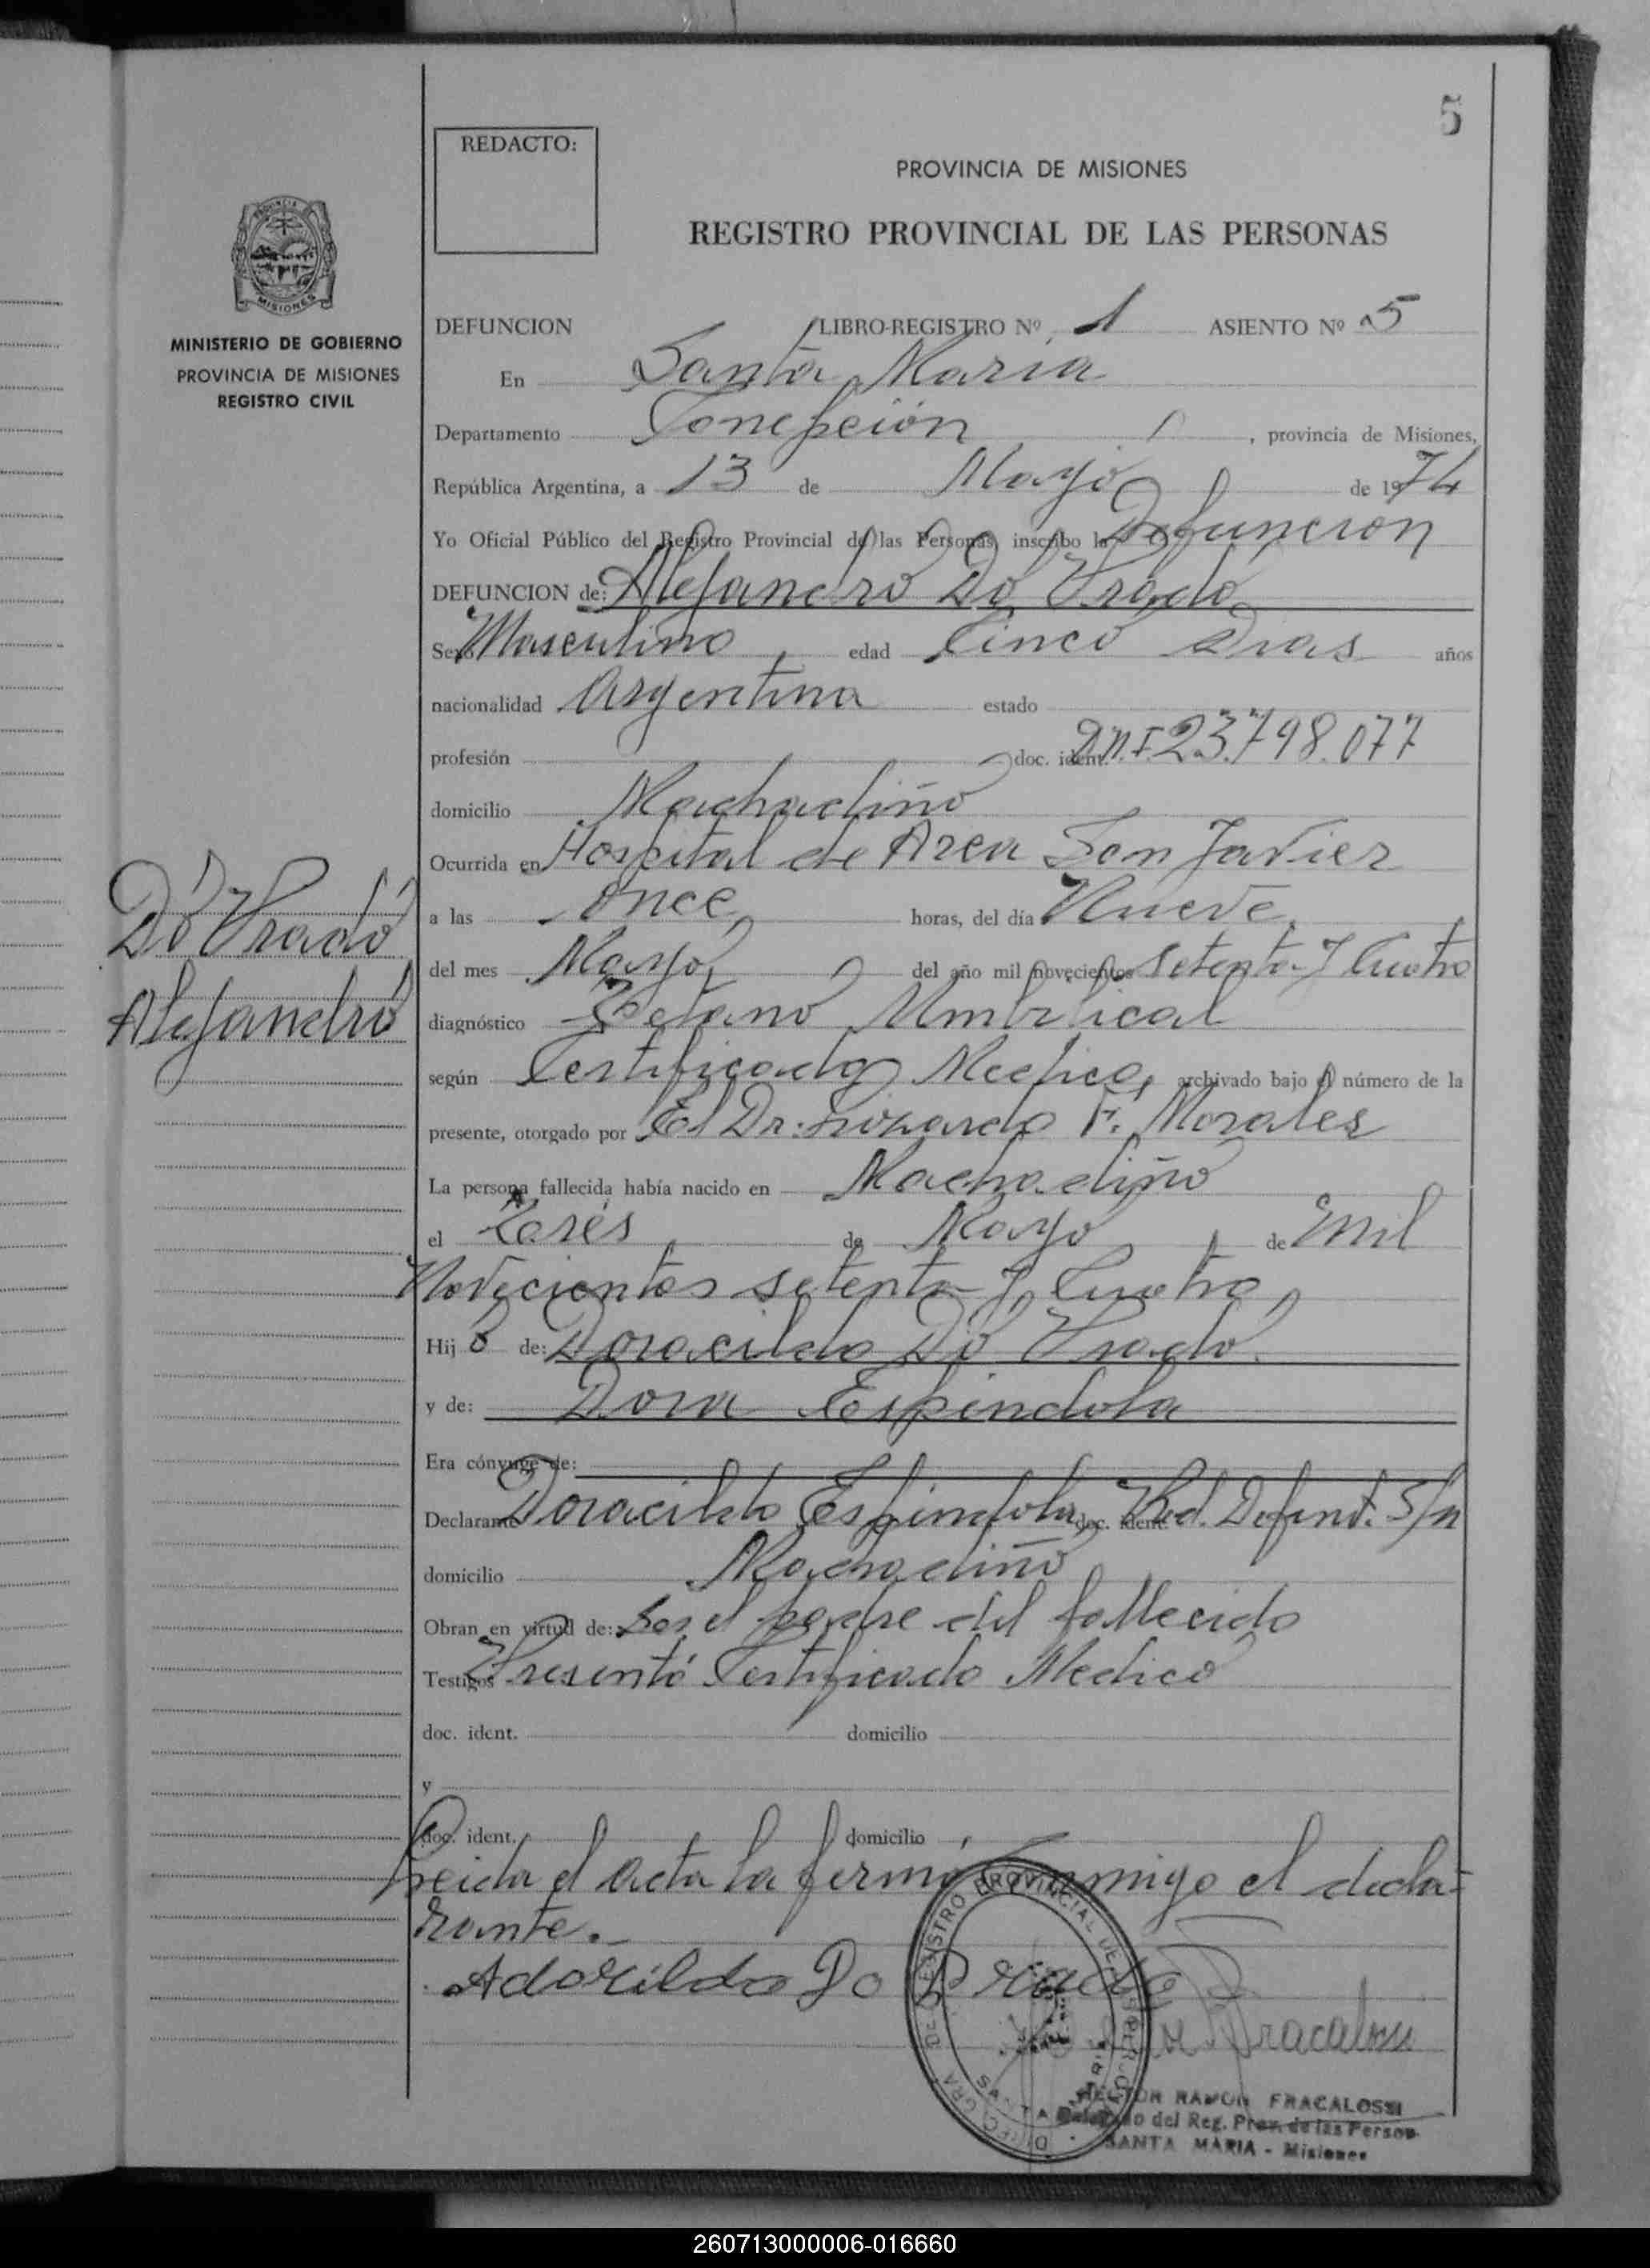 5
REDACTO:
PROVINCIA DE MISIONES
REGISTRO PROVINCIAL DE LAS PERSONAS
MISIONES
MINISTERIO DE GOBIERNO
PROVINCIA DE MISIONES
REGISTRO CIVIL
DEFUNCION LIBRO-REGISTRO Nº 1 ASIENTO Nº 5
En Santa María
Departamento Concepción, provincia de Misiones,
República Argentina, a 13 de Mayo de 1974
Yo Oficial Público del Registro Provincial de las Personas, inscribo la Defunción
DEFUNCION de: Alejandro Do Prado
Sexo Masculino edad Cinco Dias años
nacionalidad Argentina estado
profesión doc. ident. D.N.I. 23.798.077
domicilio Machadiño
Ocurrida en Hospital de Area San Javier
a las once horas, del día Nueve
Do Prado
Alejandro
del mes Mayo, del año mil novecientos setenta y Cuatro
diagnóstico Tetano Umbilical
según Certificado Medico, archivado bajo el número de la
presente, otorgado por El Dr: F. Morales
La persona fallecida había nacido en Machadiño
el de Mayo de Mil
Novecientos setenta y Cuatro
Hij o de: Doracildo Do Prado
y de: Dora Espindola
Era cónyuge de:
Declarante Doracildo Espindola, doc. ident. Ced. Defint. S/n
domicilio Machadiño
Obran en virtud de: Ser el padre del fallecido
Testigos Presentó Certificado Medico
doc. ident. domicilio
y
doc. ident. domicilio
Leida el acta la firma conmigo el decla-
rante.
Adorildo Do Prado
Fracalossi
HECTOR RAMON FRACALOSSI
Delegado del Reg. Prov. de las Person.
SANTA MARIA - Misiones
260713000006-016660